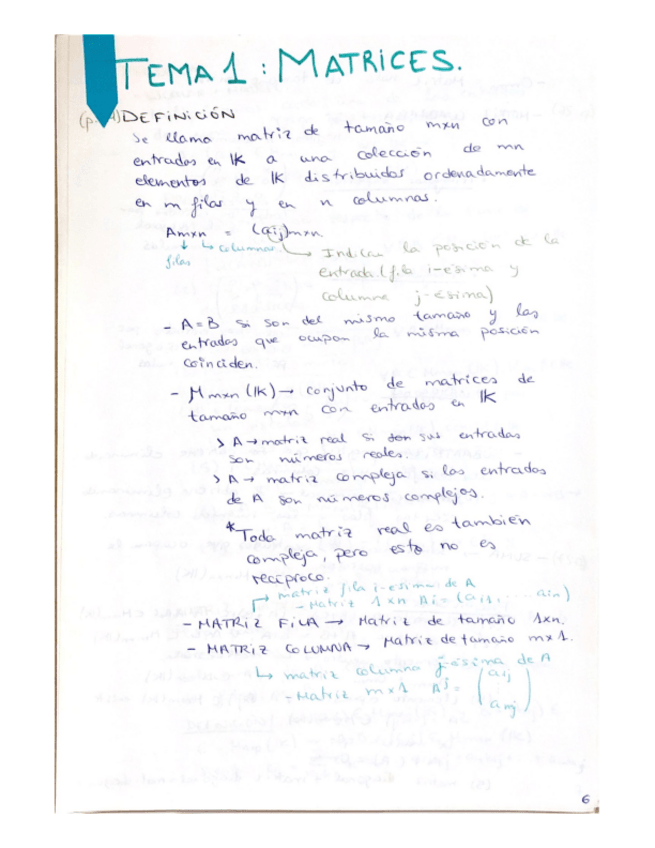 TEMA 1: MATRICES.
DEFINICIÓN
Se llama matriz de tamaño mxn con
entradas en IK a una colección de mn
elementos de IK distribuidos ordenadamente
en m filas y en n columnas.
Amxn = (aij)mxn
filas columnas Indican la posición de la
entrada (fila i-ésima y
columna j-ésima)
- A=B si son del mismo tamaño y las
entradas que ocupan la misma posición
coinciden.
- Mmxn (IK) → conjunto de matrices de
tamaño mxn con entradas en IK
> A → matriz real si son sus entradas
son números reales.
> A → matriz compleja si las entradas
de A son números complejos.
* Toda matriz real es también
compleja, pero esto no es
recíproco.
matriz fila i-ésima de A
- Matriz 1xn Ai = (ai1, ... ain)
- MATRIZ FILA → Matriz de tamaño 1xn.
- MATRIZ COLUMNA → Matriz de tamaño mx1.
matriz columna j-ésima de A
- Matriz mx1 Aj = (a1j
amj)
6